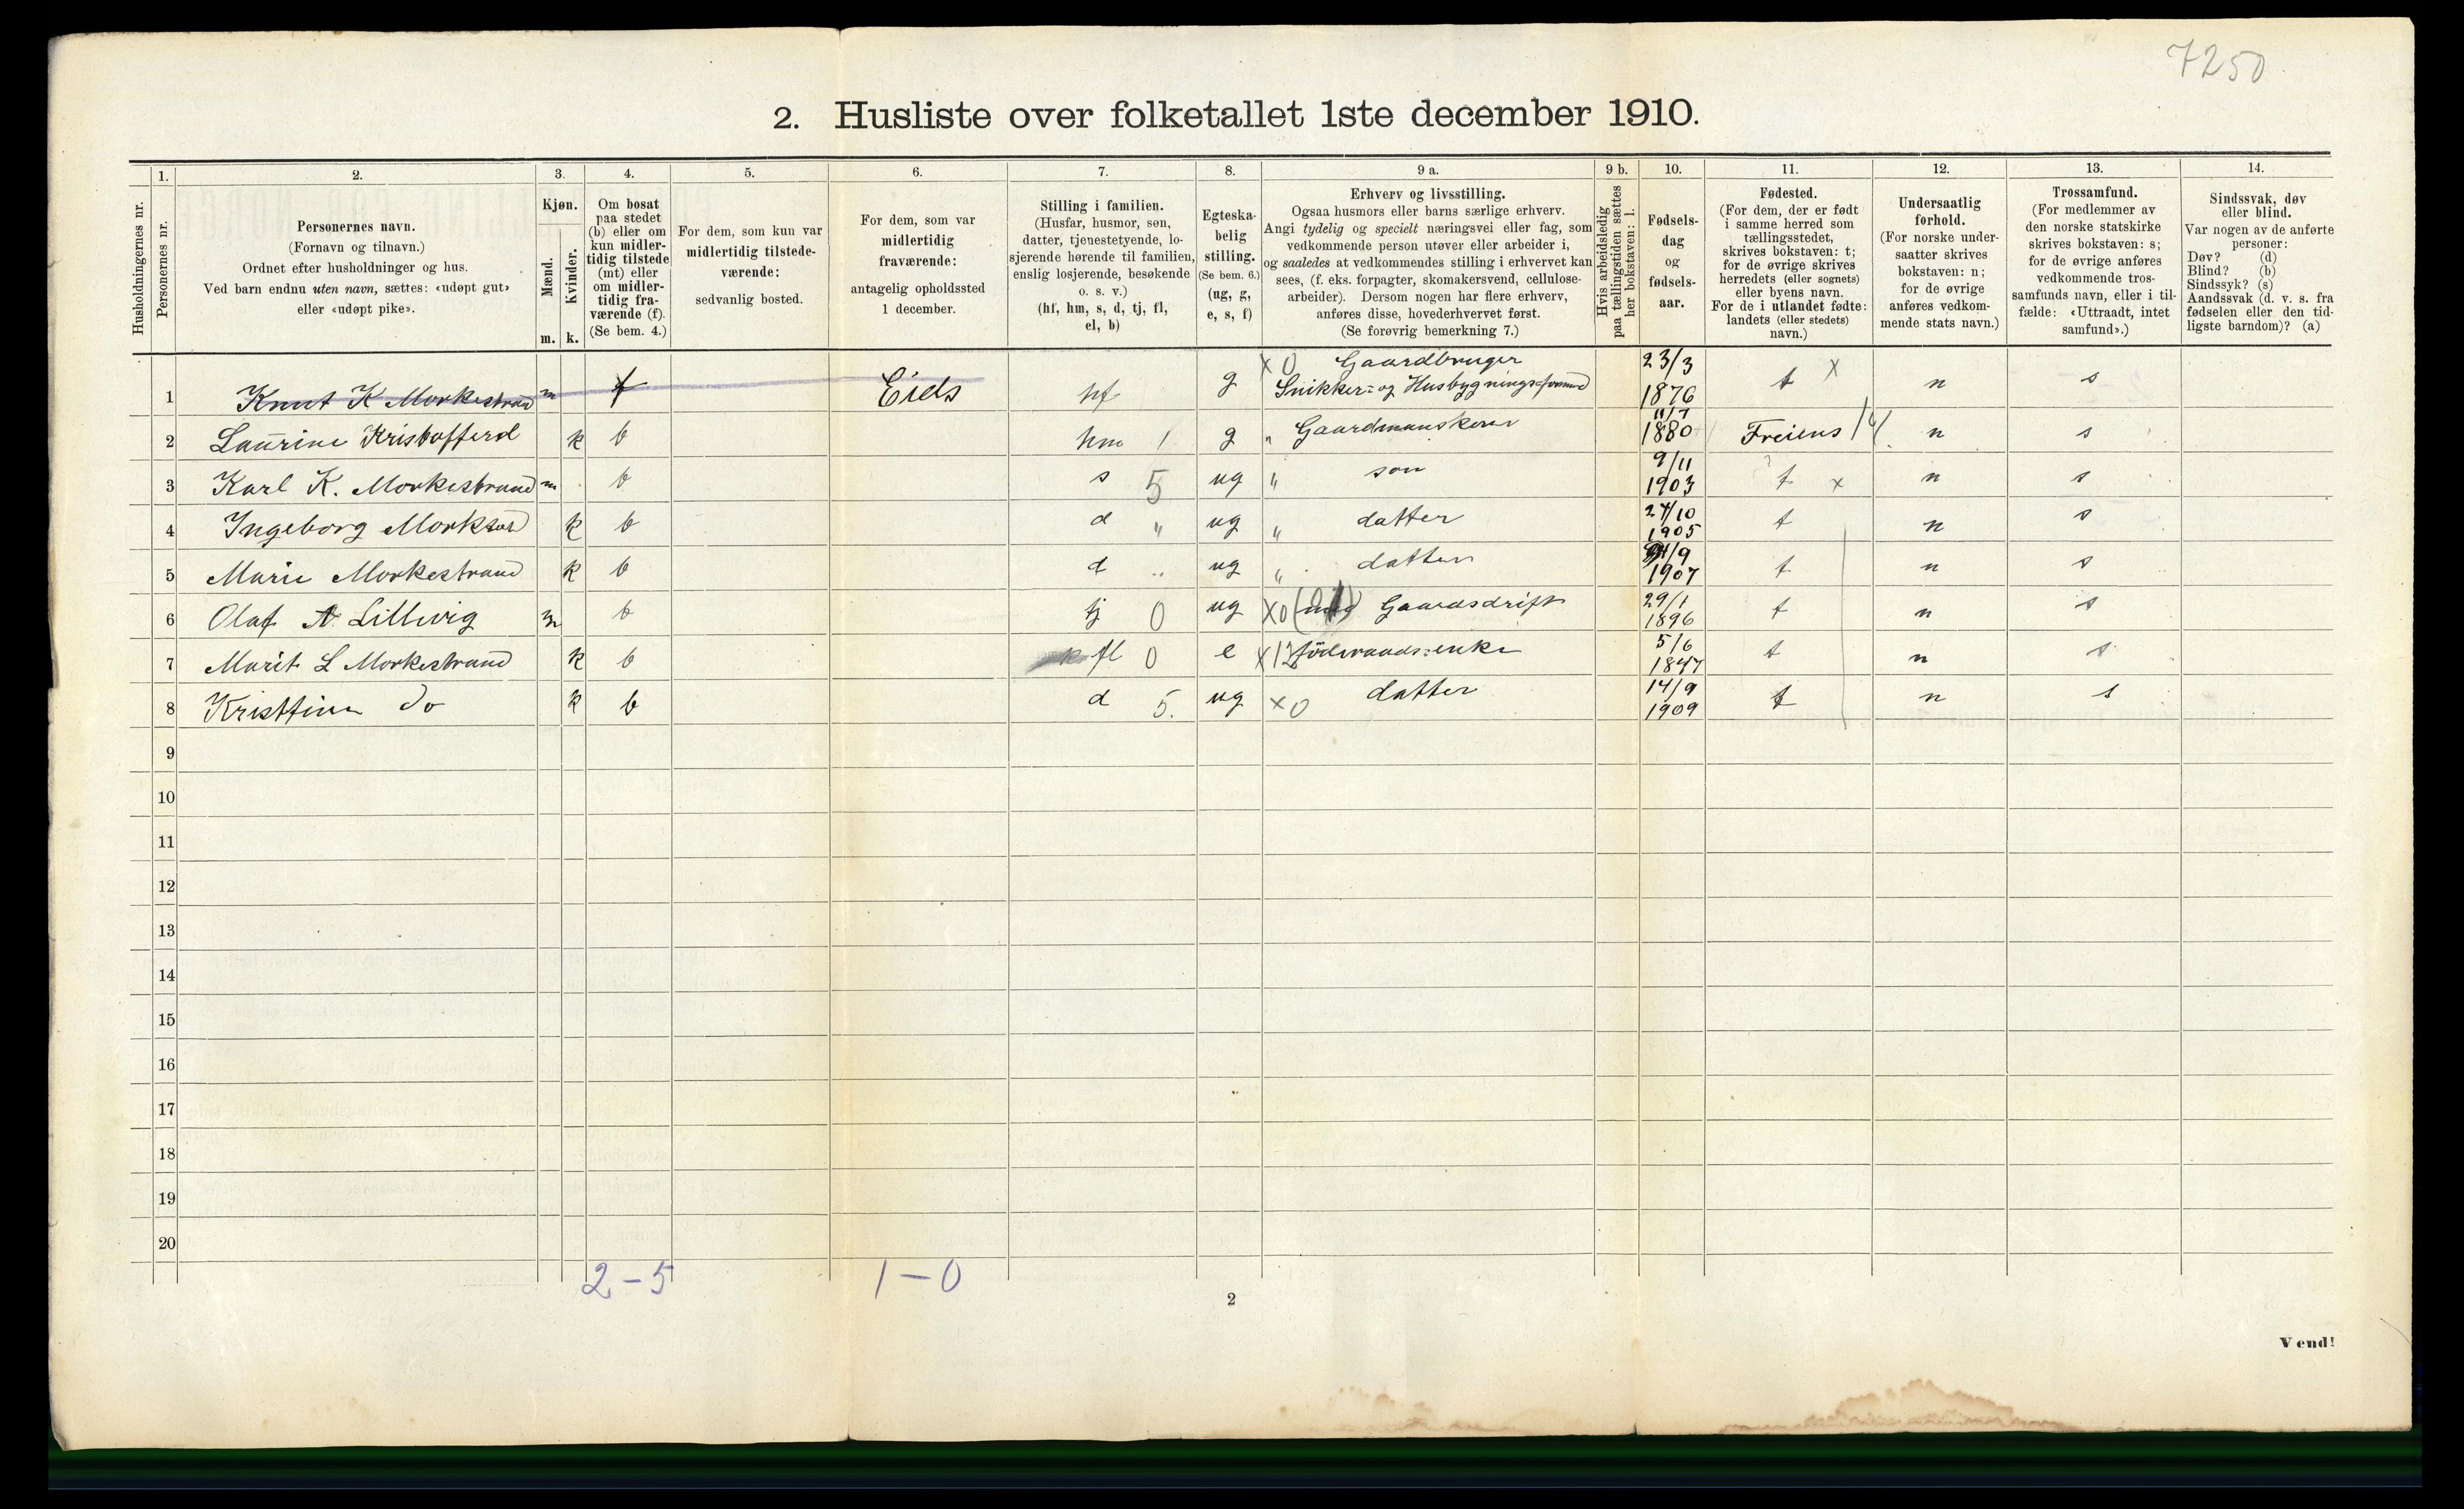 7250
2. Husliste over folketallet 1ste december 1910.
Husholdningernes nr.
1.
Personernes nr.
2.
Personernes navn.
(Fornavn og tilnavn.)
Ordnet efter husholdninger og hus.
Ved barn endnu uten navn, sættes: «udøpt gut»
eller «udøpt pike».
3.
Kjøn.
Mænd.
Kvinder.
m. k.
4.
Om bosat
paa stedet
(b) eller om
kun midler-
tidig tilstede
(mt) eller
om midler-
tidig fra-
værende (f).
(Se bem. 4.)
5.
For dem, som kun var
midlertidig tilstede-
værende:
sedvanlig bosted.
6.
For dem, som var
midlertidig
fraværende:
antagelig opholdssted
1 december.
7.
Stilling i familien.
(Husfar, husmor, søn,
datter, tjenestetyende, lo-
sjerende hørende til familien,
enslig losjerende, besøkende
o. s. v.)
(hf, hm, s, d, tj, fl,
el, b)
8.
Egteska-
belig
stilling.
(Se bem. 6.)
(ug, g,
e, s, f)
9 a.
Erhverv og livsstilling.
Ogsaa husmors eller barns særlige erhverv.
Angi tydelig og specielt næringsvei eller fag, som
vedkommende person utøver eller arbeider i,
og saaledes at vedkommendes stilling i erhvervet kan
sees, (f. eks. forpagter, skomakersvend, cellulose-
arbeider). Dersom nogen har flere erhverv,
anføres disse, hovederhvervet først.
(Se forøvrig bemerkning 7.)
9 b.
Hvis arbeidsledig
paa tællingstiden sættes
her bokstaven: l.
10.
Fødsels-
dag
og
fødsels-
aar.
11.
Fødested.
(For dem, der er født
i samme herred som
tællingsstedet,
skrives bokstaven: t;
for de øvrige skrives
herredets (eller sognets)
eller byens navn.
For de i utlandet fødte:
landets (eller stedets)
navn.)
12.
Undersaatlig
forhold.
(For norske under-
saatter skrives
bokstaven: n;
for de øvrige
anføres vedkom-
mende stats navn.)
13.
Trossamfund.
(For medlemmer av
den norske statskirke
skrives bokstaven: s;
for de øvrige anføres
vedkommende tros-
samfunds navn, eller i til-
fælde: «Uttraadt, intet
samfund».)
14.
Sindssvak, døv
eller blind.
Var nogen av de anførte
personer:
Døv? (d)
Blind? (b)
Sindssyk? (s)
Aandssvak (d. v. s. fra
fødselen eller den tid-
ligste barndom)? (a)
1 Knut K Morkestrand m f Eids hf g x0 Gaardbruger Snikker- og 23/3 1876 t x n s
2 Laurine k b hm 1 g " 11/7 1880 Freiens n s
3 Karl K. Morkestrand m b s 5 ug " søn 9/11 1903 t x n s
4 Ingeborg k b d " ug " datter 27/10 1905 t n s
5 Marie Morkestrand k b d " ug " datter 1907 t n s
6 Olaf A Lillevig m b tj 0 ug x0 Gaardsdrift 29/1 1896 t n s
7 Marit L Morkestrand k b fl 0 e x12 föderaads-enke 5/6 1847 t n s
8 Kristtine do k b d 5. ug x0 datter 14/9 1909 t n s
9
10
11
12
13
14
15
16
17
18
19
20
2-5 1-0
2
Vend!